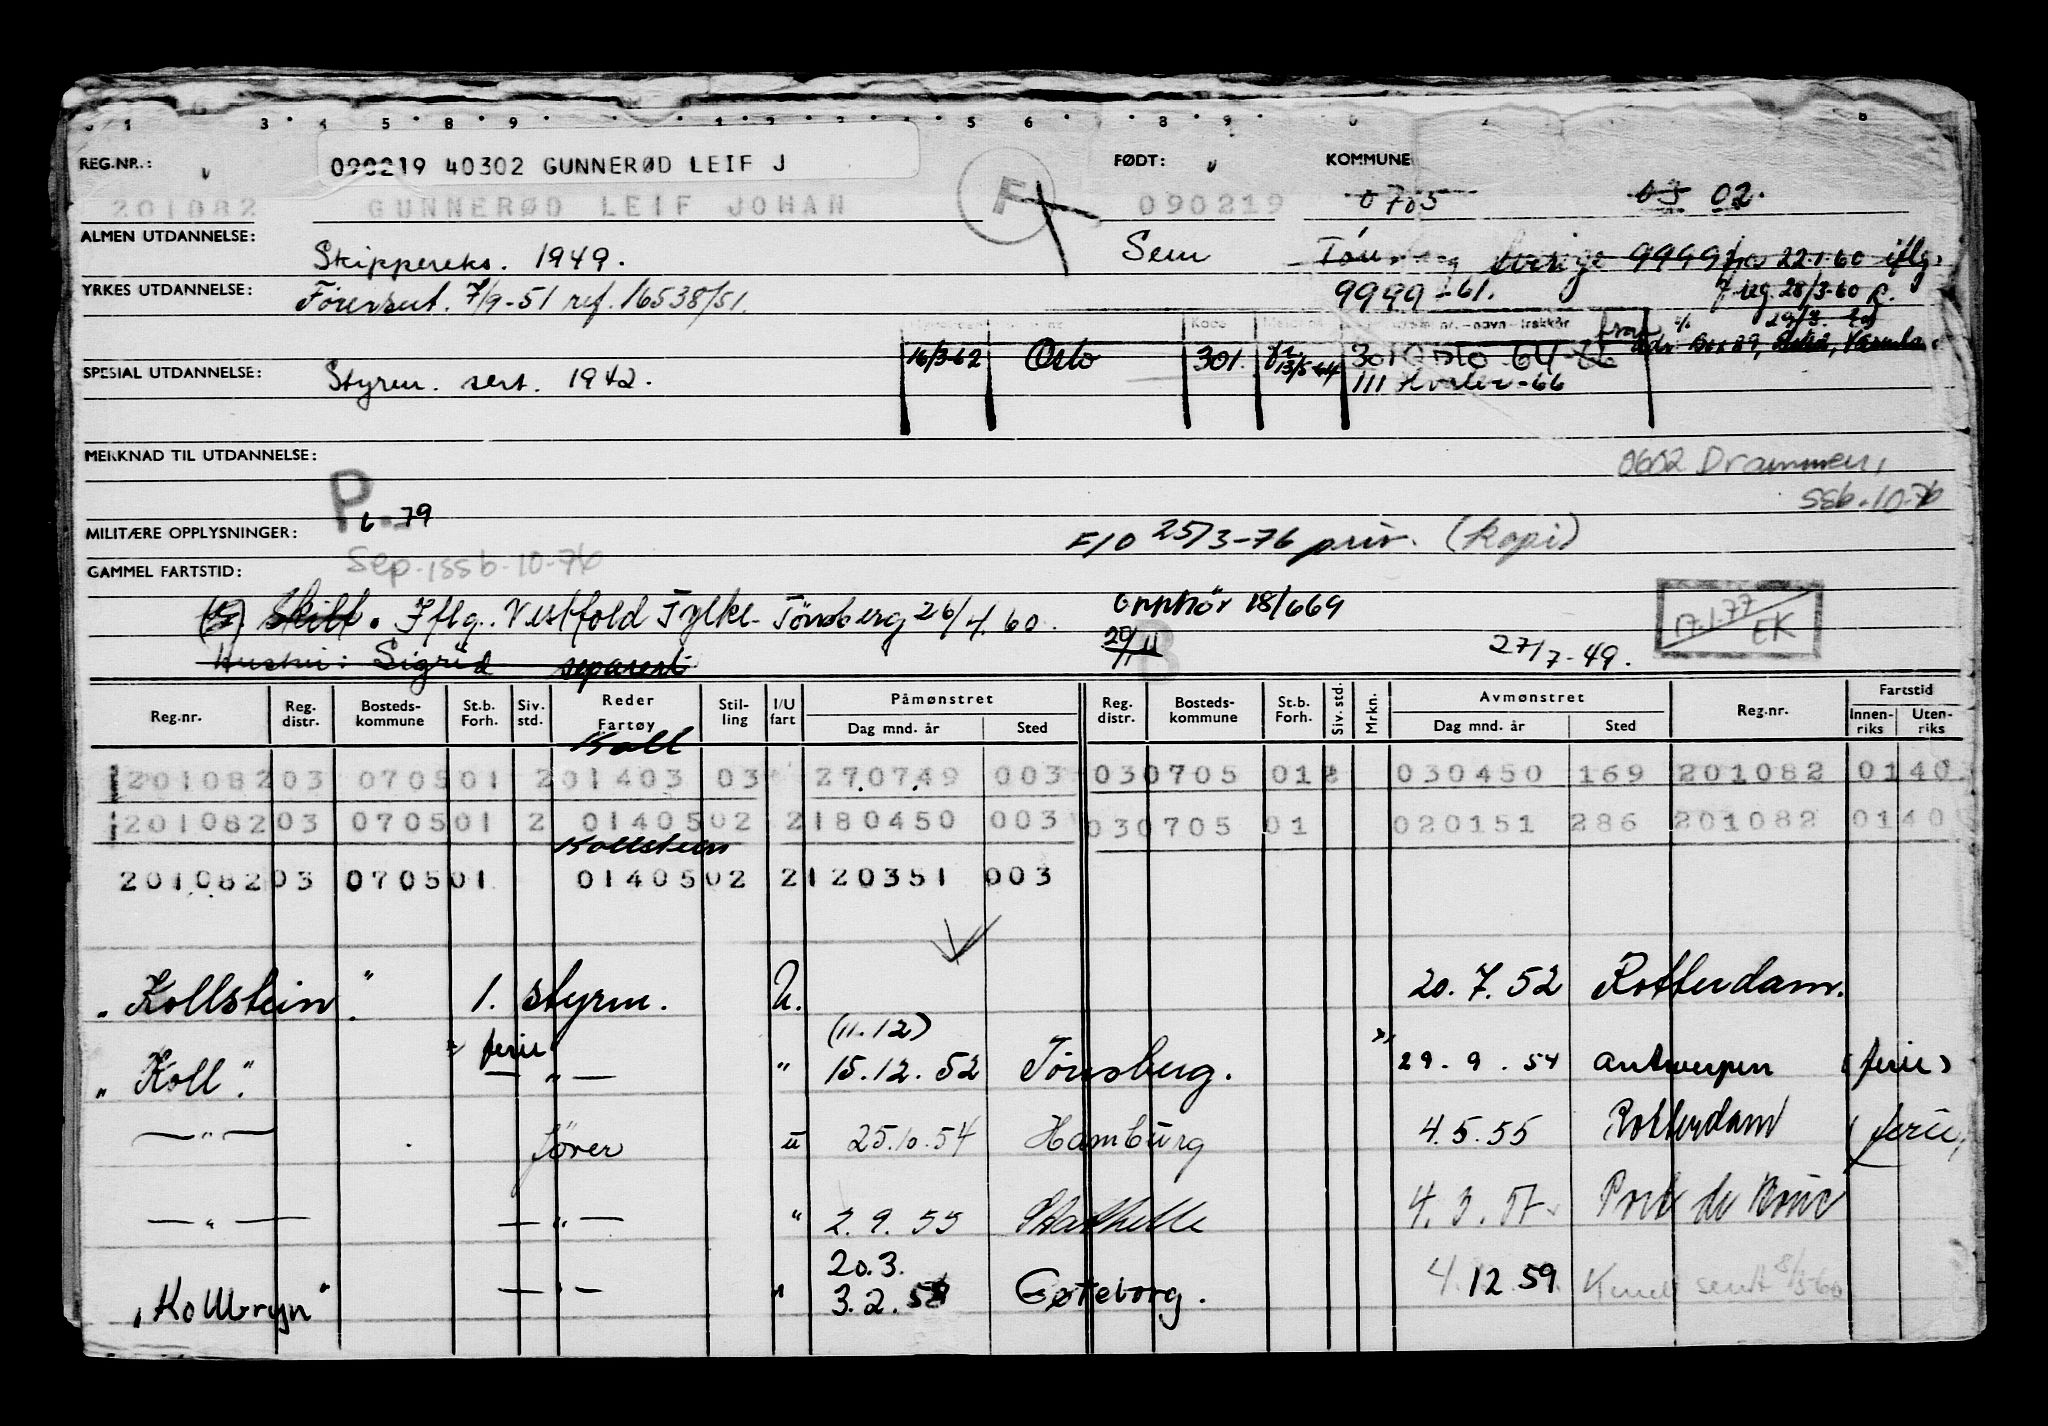 REG.NR.: 090219 40302 GUNNERØD LEIF J FØDT: KOMMUNE
201082 GUNNERØD LEIF JOHAN F 090219 0705 03 02.
ALMEN UTDANNELSE: Skippereks. 1949. Sem Tönsberg Sverige 9999 fra 22-1-60 iflg.
YRKES UTDANNELSE: Førersert. 7/9-51 ref. 16538/51. 9999-61. 28/3-60
16/3-62 Oslo 301. 13/5-64 301 Oslo 64
SPESIAL UTDANNELSE: Styrm. sert. 1942. 111 Hvaler-66
MERKNAD TIL UTDANNELSE: 0602 Drammen,
SSb-10-76
P. 6-79
MILITÆRE OPPLYSNINGER: F/O 25/3-76 priv. (kopi)
Sep. i SSb-10-76
GAMMEL FARTSTID:
Skilt. Iflg. Vestfold Fylke- Tönsberg 26/4.60. opphör 18/669
20/11 B 27/7-49. 17.1.77 EK
Hustru: Sigrid separert
Reg.nr. Reg. distr. Bosteds-kommune St.b. Forh. Siv. std. Reder Fartøy Stil-ling I/U fart Påmønstret Dag mnd. år Sted Reg. distr. Bosteds-kommune St.b. Forh. Siv. std. Mrkn. Avmønstret Dag mnd. år Sted Reg.nr. Fartstid Innen-riks Uten-riks
Koll
201082 03 0705 01 2 01403 03 27.07.49 003 03 0705 01 2 030450 169 201082 0140
201082 03 0705 01 2 01405 02 2 180450 003 03 0705 01 020151 286 201082 0140
Kollstein
201082 03 0705 01 01405 02 2 120351 003
"Kollstein" 1. styrm. U. 20.7.52 Rotterdam.
(11.12)
ferie
"Koll". — " — " 15.12.52 Tönsberg. 29.9.54 Antwerpen (ferie)
— " — fører u 25.10.54 Hamburg 4.5.55 Rotterdam (ferie)
— " — — " — " 2.9.55 Stathelle 4.3.57 Port de Bouc
20.3.
"Kollbryn" — " — " 3.2.58 Gøteborg. 4.12.59 8/3-60